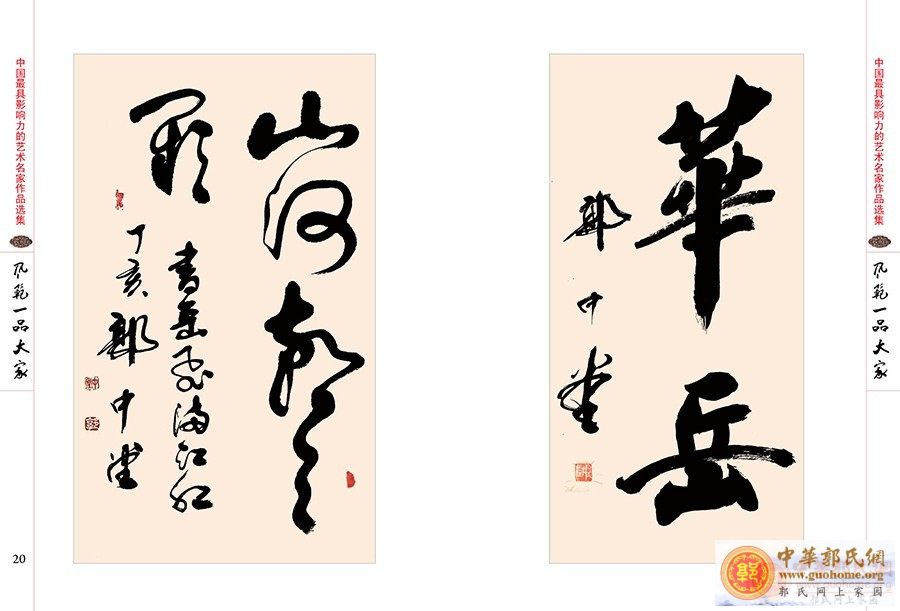 中国最具影响力的艺术名家作品选集
风範一品大家
20
山河
書岳飛满江红
丁亥郭中堂
華岳
郭中堂
中国最具影响力的艺术名家作品选集
风範一品大家
中華郭氏網
www.guohome.org
郭氏网上家园